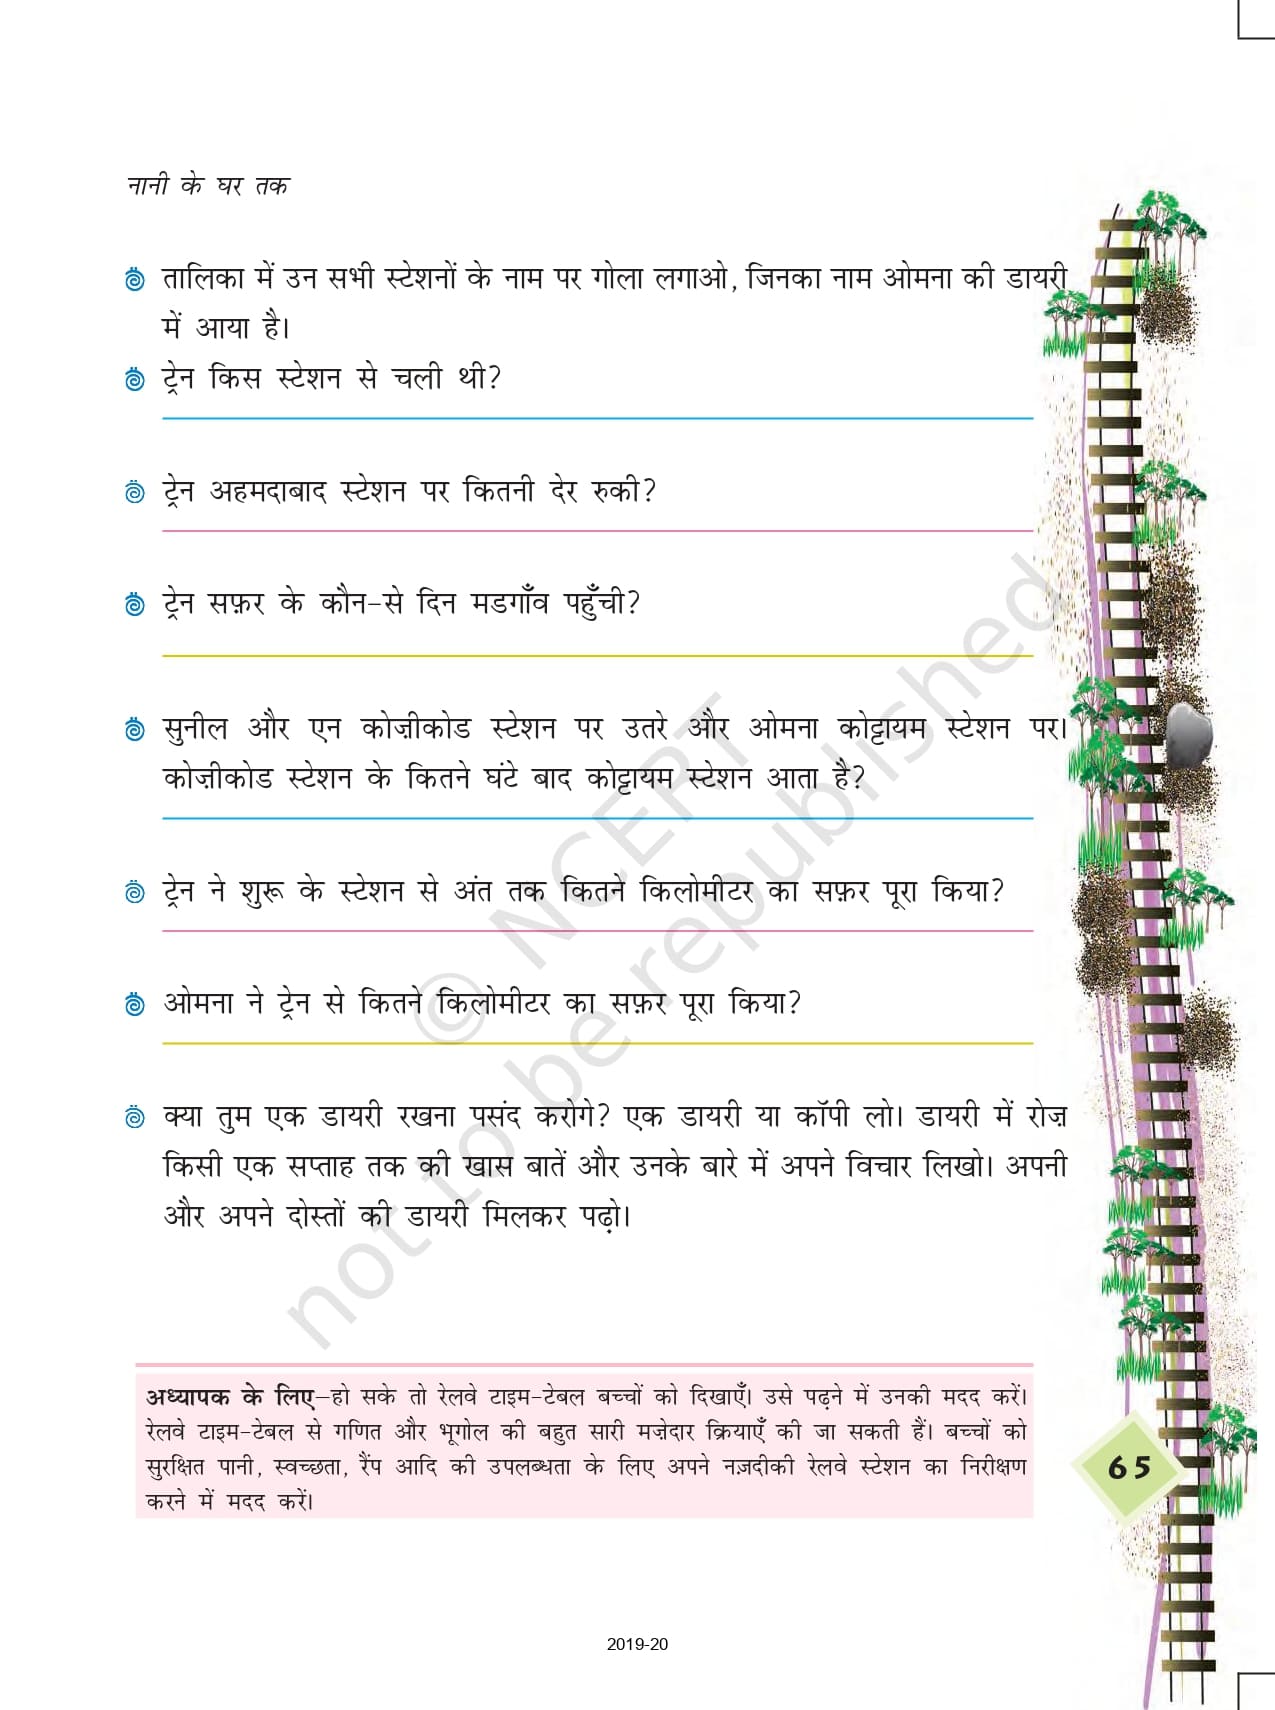 नानी के घर तक
तालिका में उन सभी स्टेशनों के नाम पर गोला लगाओ, जिनका नाम ओमना की डायरी
में आया है।
ट्रेन किस स्टेशन से चली थी?
ट्रेन अहमदाबाद स्टेशन पर कितनी देर रुकी?
ट्रेन सफ़र के कौन-से दिन मडगाँव पहुँची?
सुनील और एन कोज़ीकोड स्टेशन पर उतरे और ओमना कोट्टायम स्टेशन पर।
कोज़ीकोड स्टेशन के कितने घंटे बाद कोट्टायम स्टेशन आता है?
ट्रेन ने शुरू के स्टेशन से अंत तक कितने किलोमीटर का सफ़र पूरा किया?
ओमना ने ट्रेन से कितने किलोमीटर का सफ़र पूरा किया?
क्या तुम एक डायरी रखना पसंद करोगे? एक डायरी या कॉपी लो। डायरी में रोज़
किसी एक सप्ताह तक की खास बातें और उनके बारे में अपने विचार लिखो। अपनी
और अपने दोस्तों की डायरी मिलकर पढ़ो।
© NCERT
not to be republished
अध्यापक के लिए–हो सके तो रेलवे टाइम-टेबल बच्चों को दिखाएँ। उसे पढ़ने में उनकी मदद करें।
रेलवे टाइम-टेबल से गणित और भूगोल की बहुत सारी मज़ेदार क्रियाएँ की जा सकती हैं। बच्चों को
सुरक्षित पानी, स्वच्छता, रैंप आदि की उपलब्धता के लिए अपने नज़दीकी रेलवे स्टेशन का निरीक्षण
करने में मदद करें।
65
2019-20